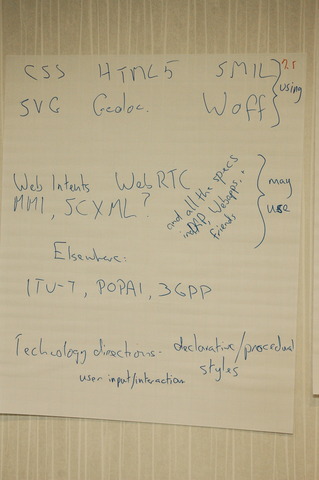 CSS HTML5 SMIL ?
SVG Geoloc. Woff
using
Web Intents WebRTC
MMI, SCXML?
and all the specs
in DAP, Webapps..
friends.
may
use
Elsewhere:
ITU-T, POPAI, 3GPP
Technology directions- declarative/procedural
styles
user input/interaction